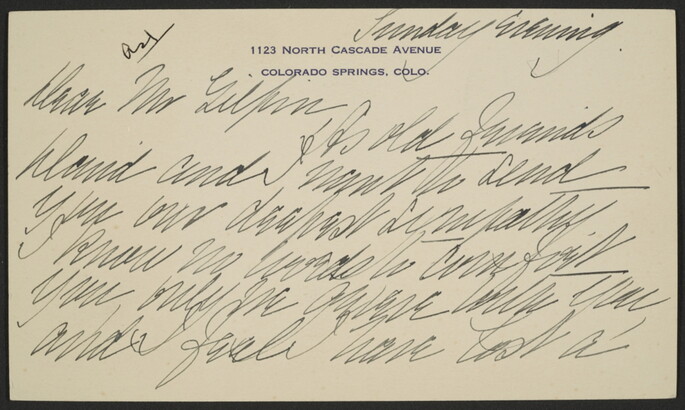 Sunday Evening.
1123 NORTH CASCADE AVENUE
COLORADO SPRINGS, COLO.
Dear Mr Gilpin
As old friends
David and I want to send
you our deepest sympathy
I know no words to comfort
you only we grieve with you
and I feel I have lost a